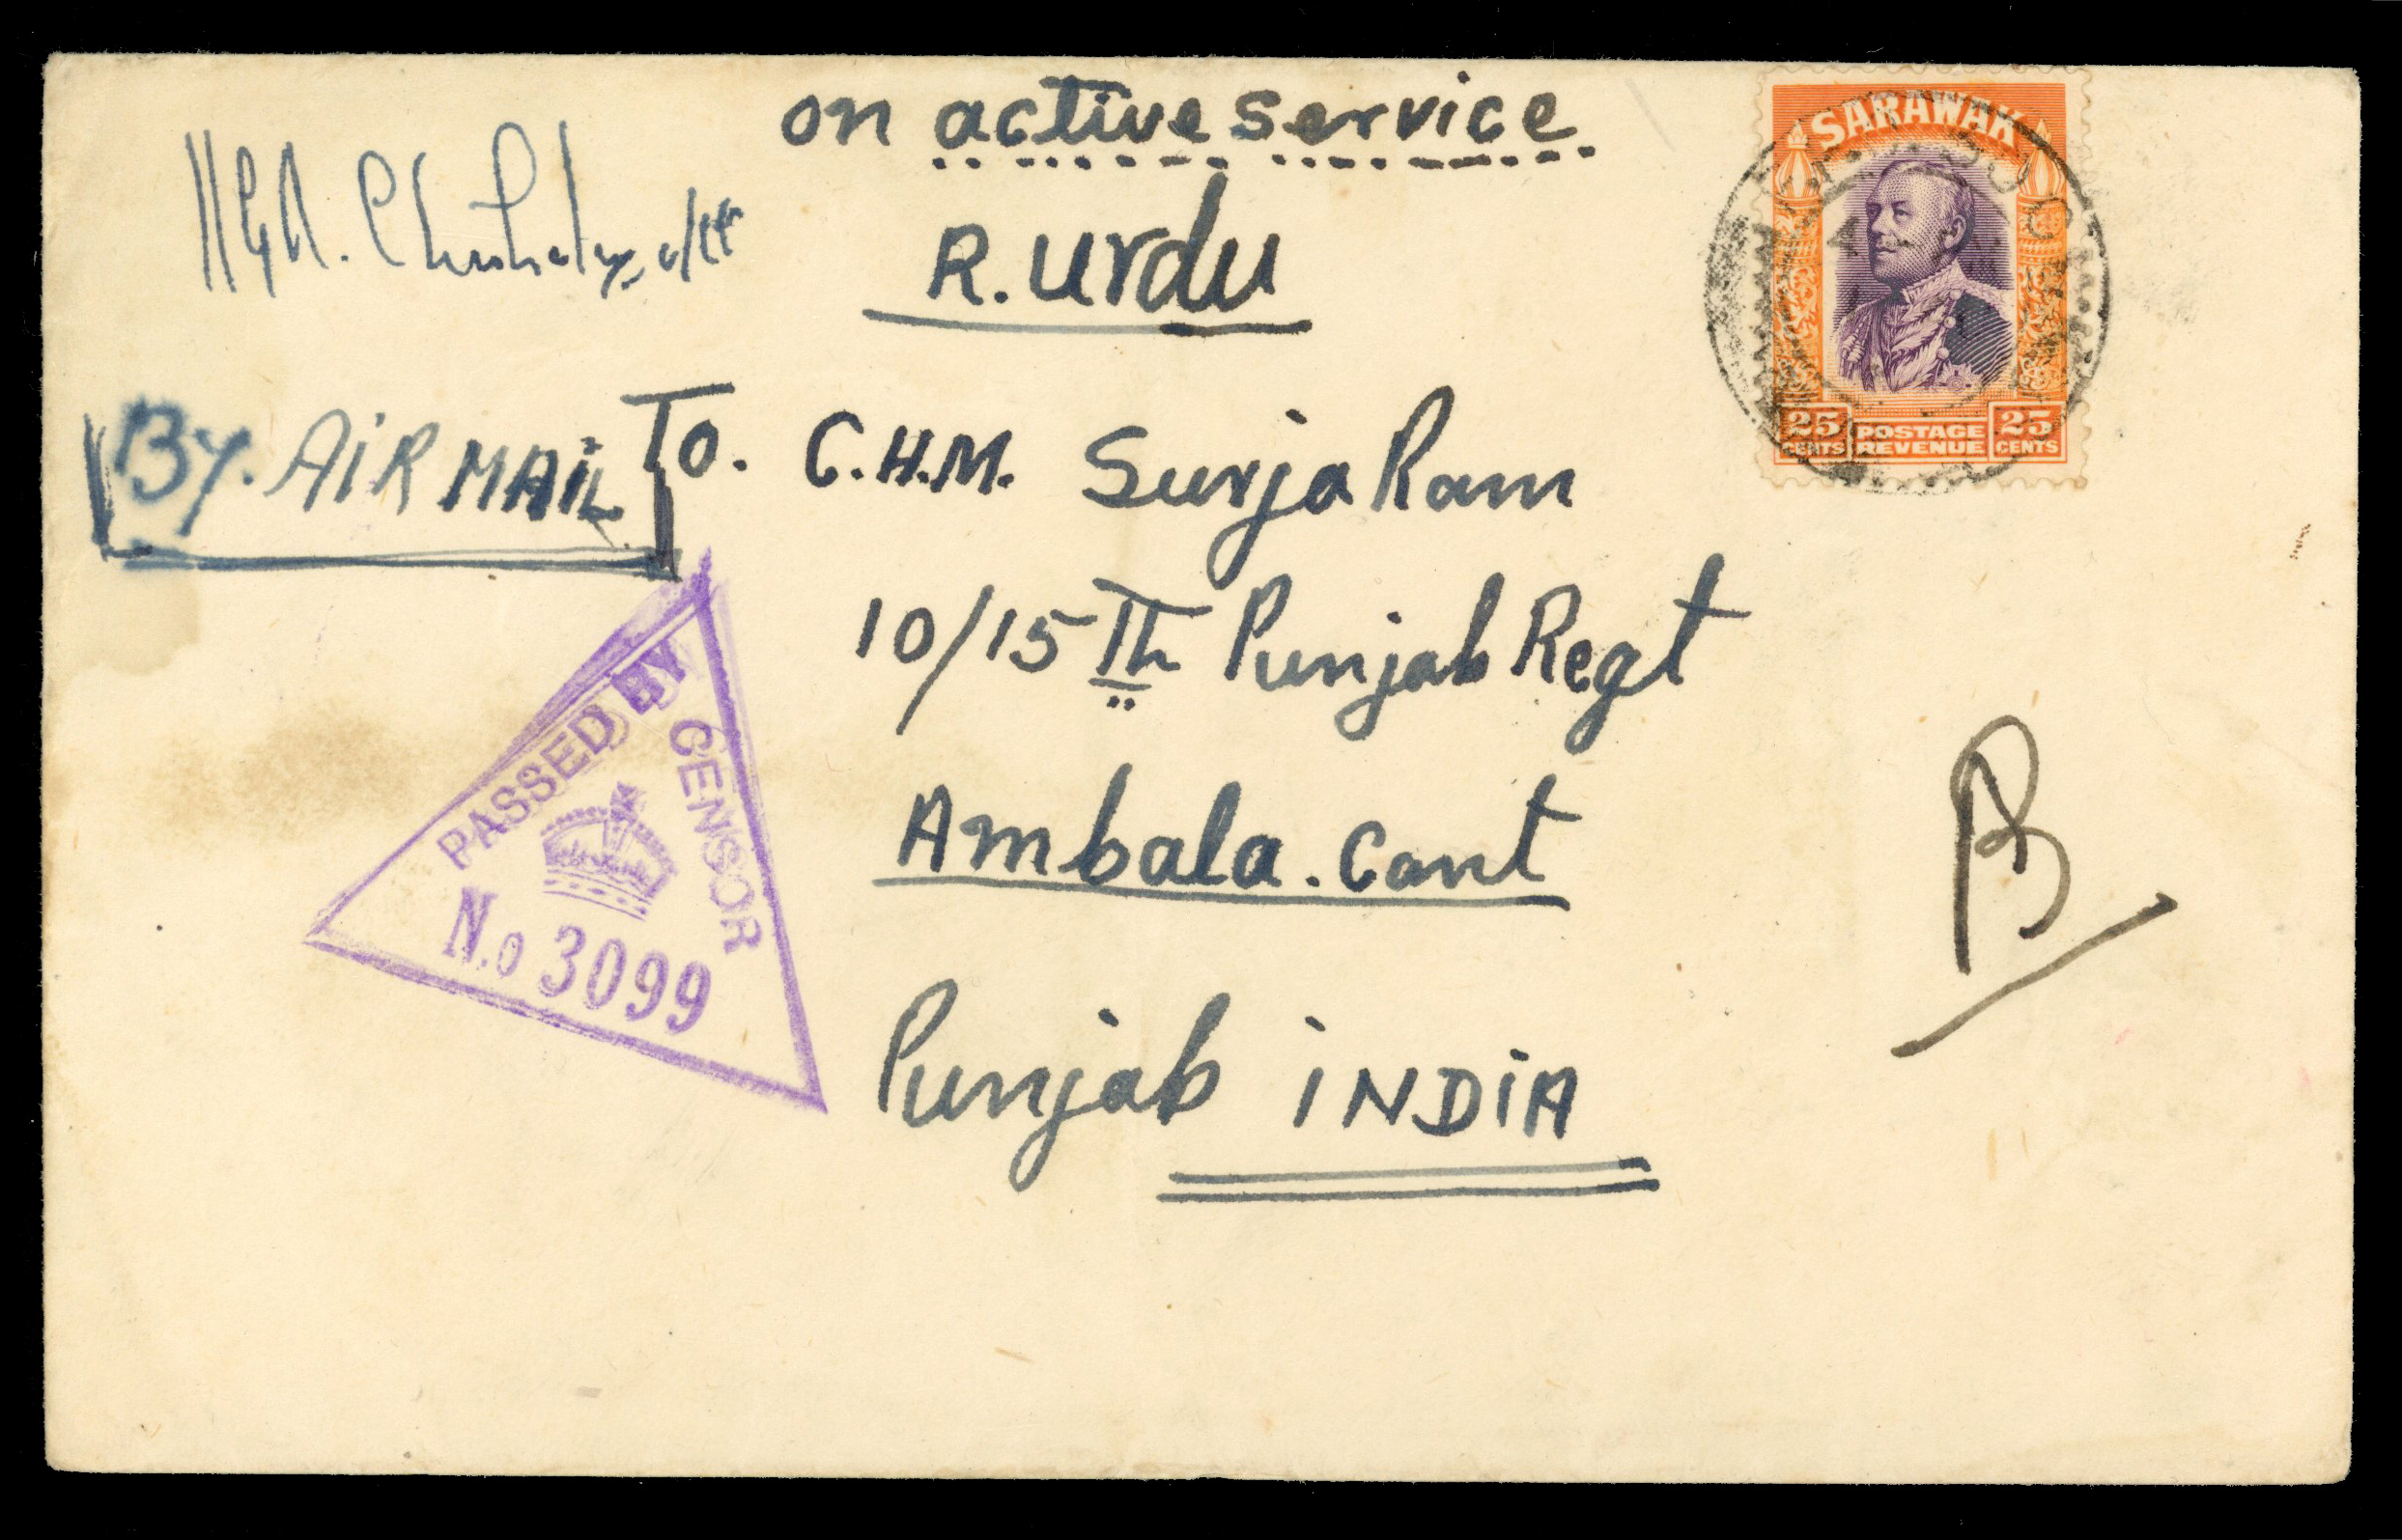 on active service
R. urdu
SARAWAK
25 CENTS
POSTAGE REVENUE
25 CENTS
By. AIR MAIL
To. C.H.M. Surja Ram
10/15 Th Punjab Regt
Ambala. Cant
Punjab INDIA
PASSED BY CENSOR
No 3099